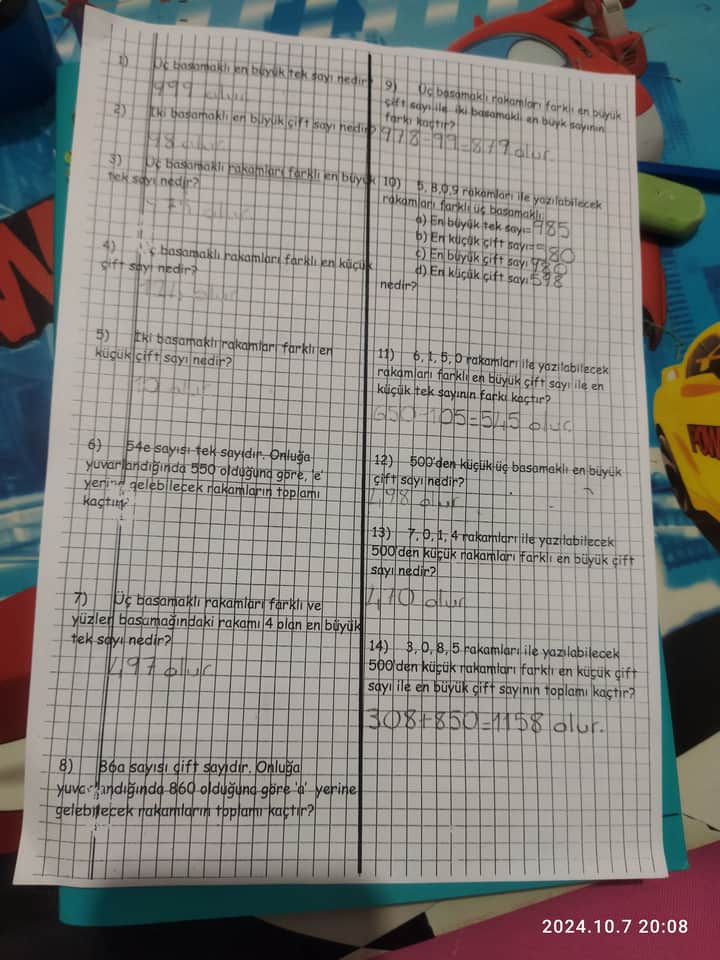 1) Üç basamaklı en büyük tek sayı nedir?
999 olur
2) İki basamaklı en büyük çift sayı nedir?
98 olur
3) Üç basamaklı rakamları farklı en büyük
tek sayı nedir?
olur
4) basamaklı rakamları farklı en küçük
çift sayı nedir?
124 olur
5) İki basamaklı rakamları farklı en
küçük çift sayı nedir?
10 olur
6) 54e sayısı tek sayıdır. Onluğa
yuvarlandığında 550 olduğuna göre, 'e'
yerine gelebilecek rakamların toplamı
kaçtır?
7) Üç basamaklı rakamları farklı ve
yüzler basamağındaki rakamı 4 olan en büyük
tek sayı nedir?
497 olur
8) 86a sayısı çift sayıdır. Onluğa
yuvarlandığında 860 olduğuna göre 'a' yerine
gelebilecek rakamların toplamı kaçtır?
9) Üç basamaklı rakamları farklı en büyük
çift sayı ile iki basamaklı en büyk sayının
farkı kaçtır?
978-99=879 olur.
10) 5, 8,0,9 rakamları ile yazılabilecek
rakamları farklı üç basamaklı
a) En büyük tek sayı= 985
b) En küçük çift sayı= 980
c) En büyük çift sayı 980
d) En küçük çift sayı 598
nedir?
11) 6, 1, 5, 0 rakamları ile yazılabilecek
rakamları farklı en büyük çift sayı ile en
küçük tek sayının farkı kaçtır?
650-105=545 olur
12) 500'den küçük üç basamaklı en büyük
çift sayı nedir?
498 olur
13) 7, 0, 1, 4 rakamları ile yazılabilecek
500'den küçük rakamları farklı en büyük çift
sayı nedir?
410 olur
14) 3, 0, 8, 5 rakamları ile yazılabilecek
500'den küçük rakamları farklı en küçük çift
sayı ile en büyük çift sayının toplamı kaçtır?
308+850=1158 olur.
2024.10.7 20:08